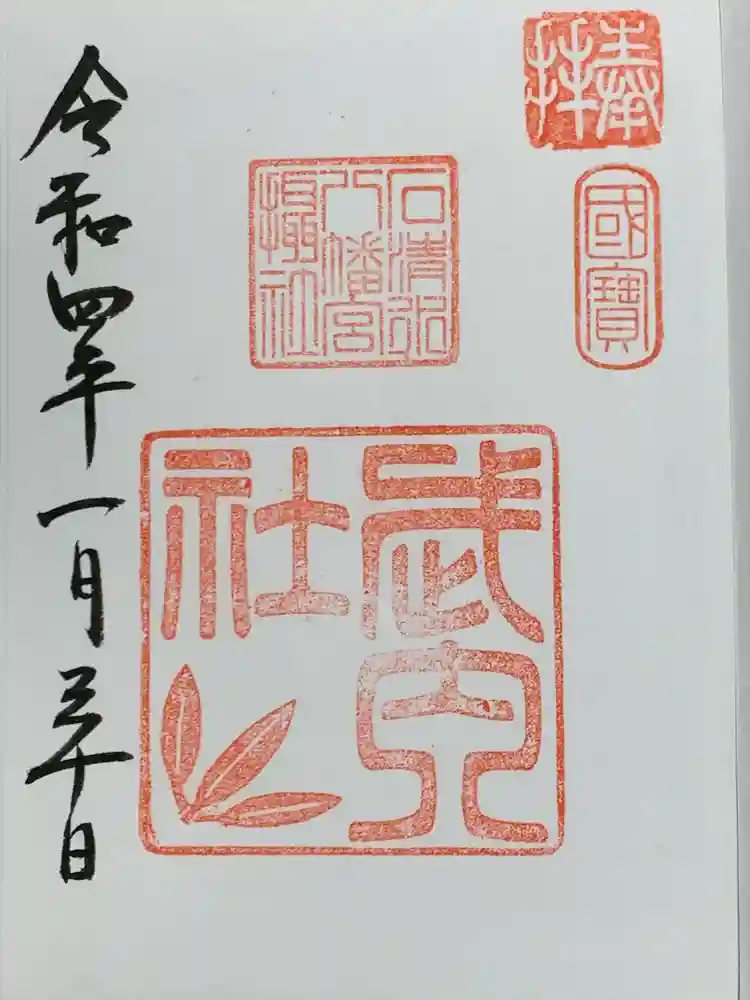 奉拝
國寶
石清水
八幡宮
摂社
武内
社
令和四年一月三十日